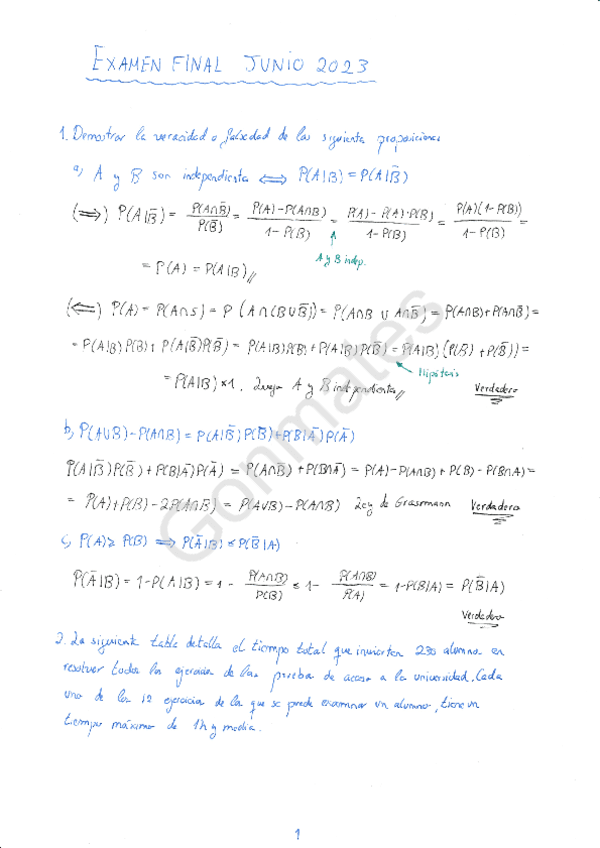 EXAMEN FINAL JUNIO 2023
1. Demostrar la veracidad o falsedad de las siguientes proposiciones
a) A y B son independientes ⟺ P(A|B) = P(A|B̄)
(⟹) P(A|B̄) = P(A∩B̄)/P(B̄) = P(A)-P(A∩B)/1-P(B) = P(A)-P(A)·P(B)/1-P(B) = P(A)(1-P(B))/1-P(B) =
A y B indep.
= P(A) = P(A|B)//
(⟸) P(A) = P(A∩S) = P(A∩(B∪B̄)) = P(A∩B ∪ A∩B̄) = P(A∩B)+P(A∩B̄) =
= P(A|B)P(B)+P(A|B̄)P(B̄) = P(A|B)P(B)+P(A|B)P(B̄) = P(A|B)(P(B)+P(B̄)) =
Hipótesis
= P(A|B)·1. Luego A y B independientes// Verdadero
b) P(A∪B)-P(A∩B) = P(A|B̄)P(B̄)+P(B|Ā)P(Ā)
P(A|B̄)P(B̄)+P(B|Ā)P(Ā) = P(A∩B̄)+P(B∩Ā) = P(A)-P(A∩B)+P(B)-P(B∩A) =
= P(A)+P(B)-2P(A∩B) = P(A∪B)-P(A∩B) Ley de Grassmann Verdadero
c) P(A)≥P(B) ⟹ P(Ā|B) ≤ P(B̄|A)
P(Ā|B) = 1-P(A|B) = 1 - P(A∩B)/P(B) ≤ 1 - P(A∩B)/P(A) = 1-P(B|A) = P(B̄|A)
Verdadero
2. La siguiente tabla detalla el tiempo total que invierten 230 alumnos en
resolver todos los ejercicios de las pruebas de acceso a la universidad. Cada
uno de los 12 ejercicios de los que se puede examinar un alumno, tiene un
tiempo máximo de 1h y media.
Gonmates
1